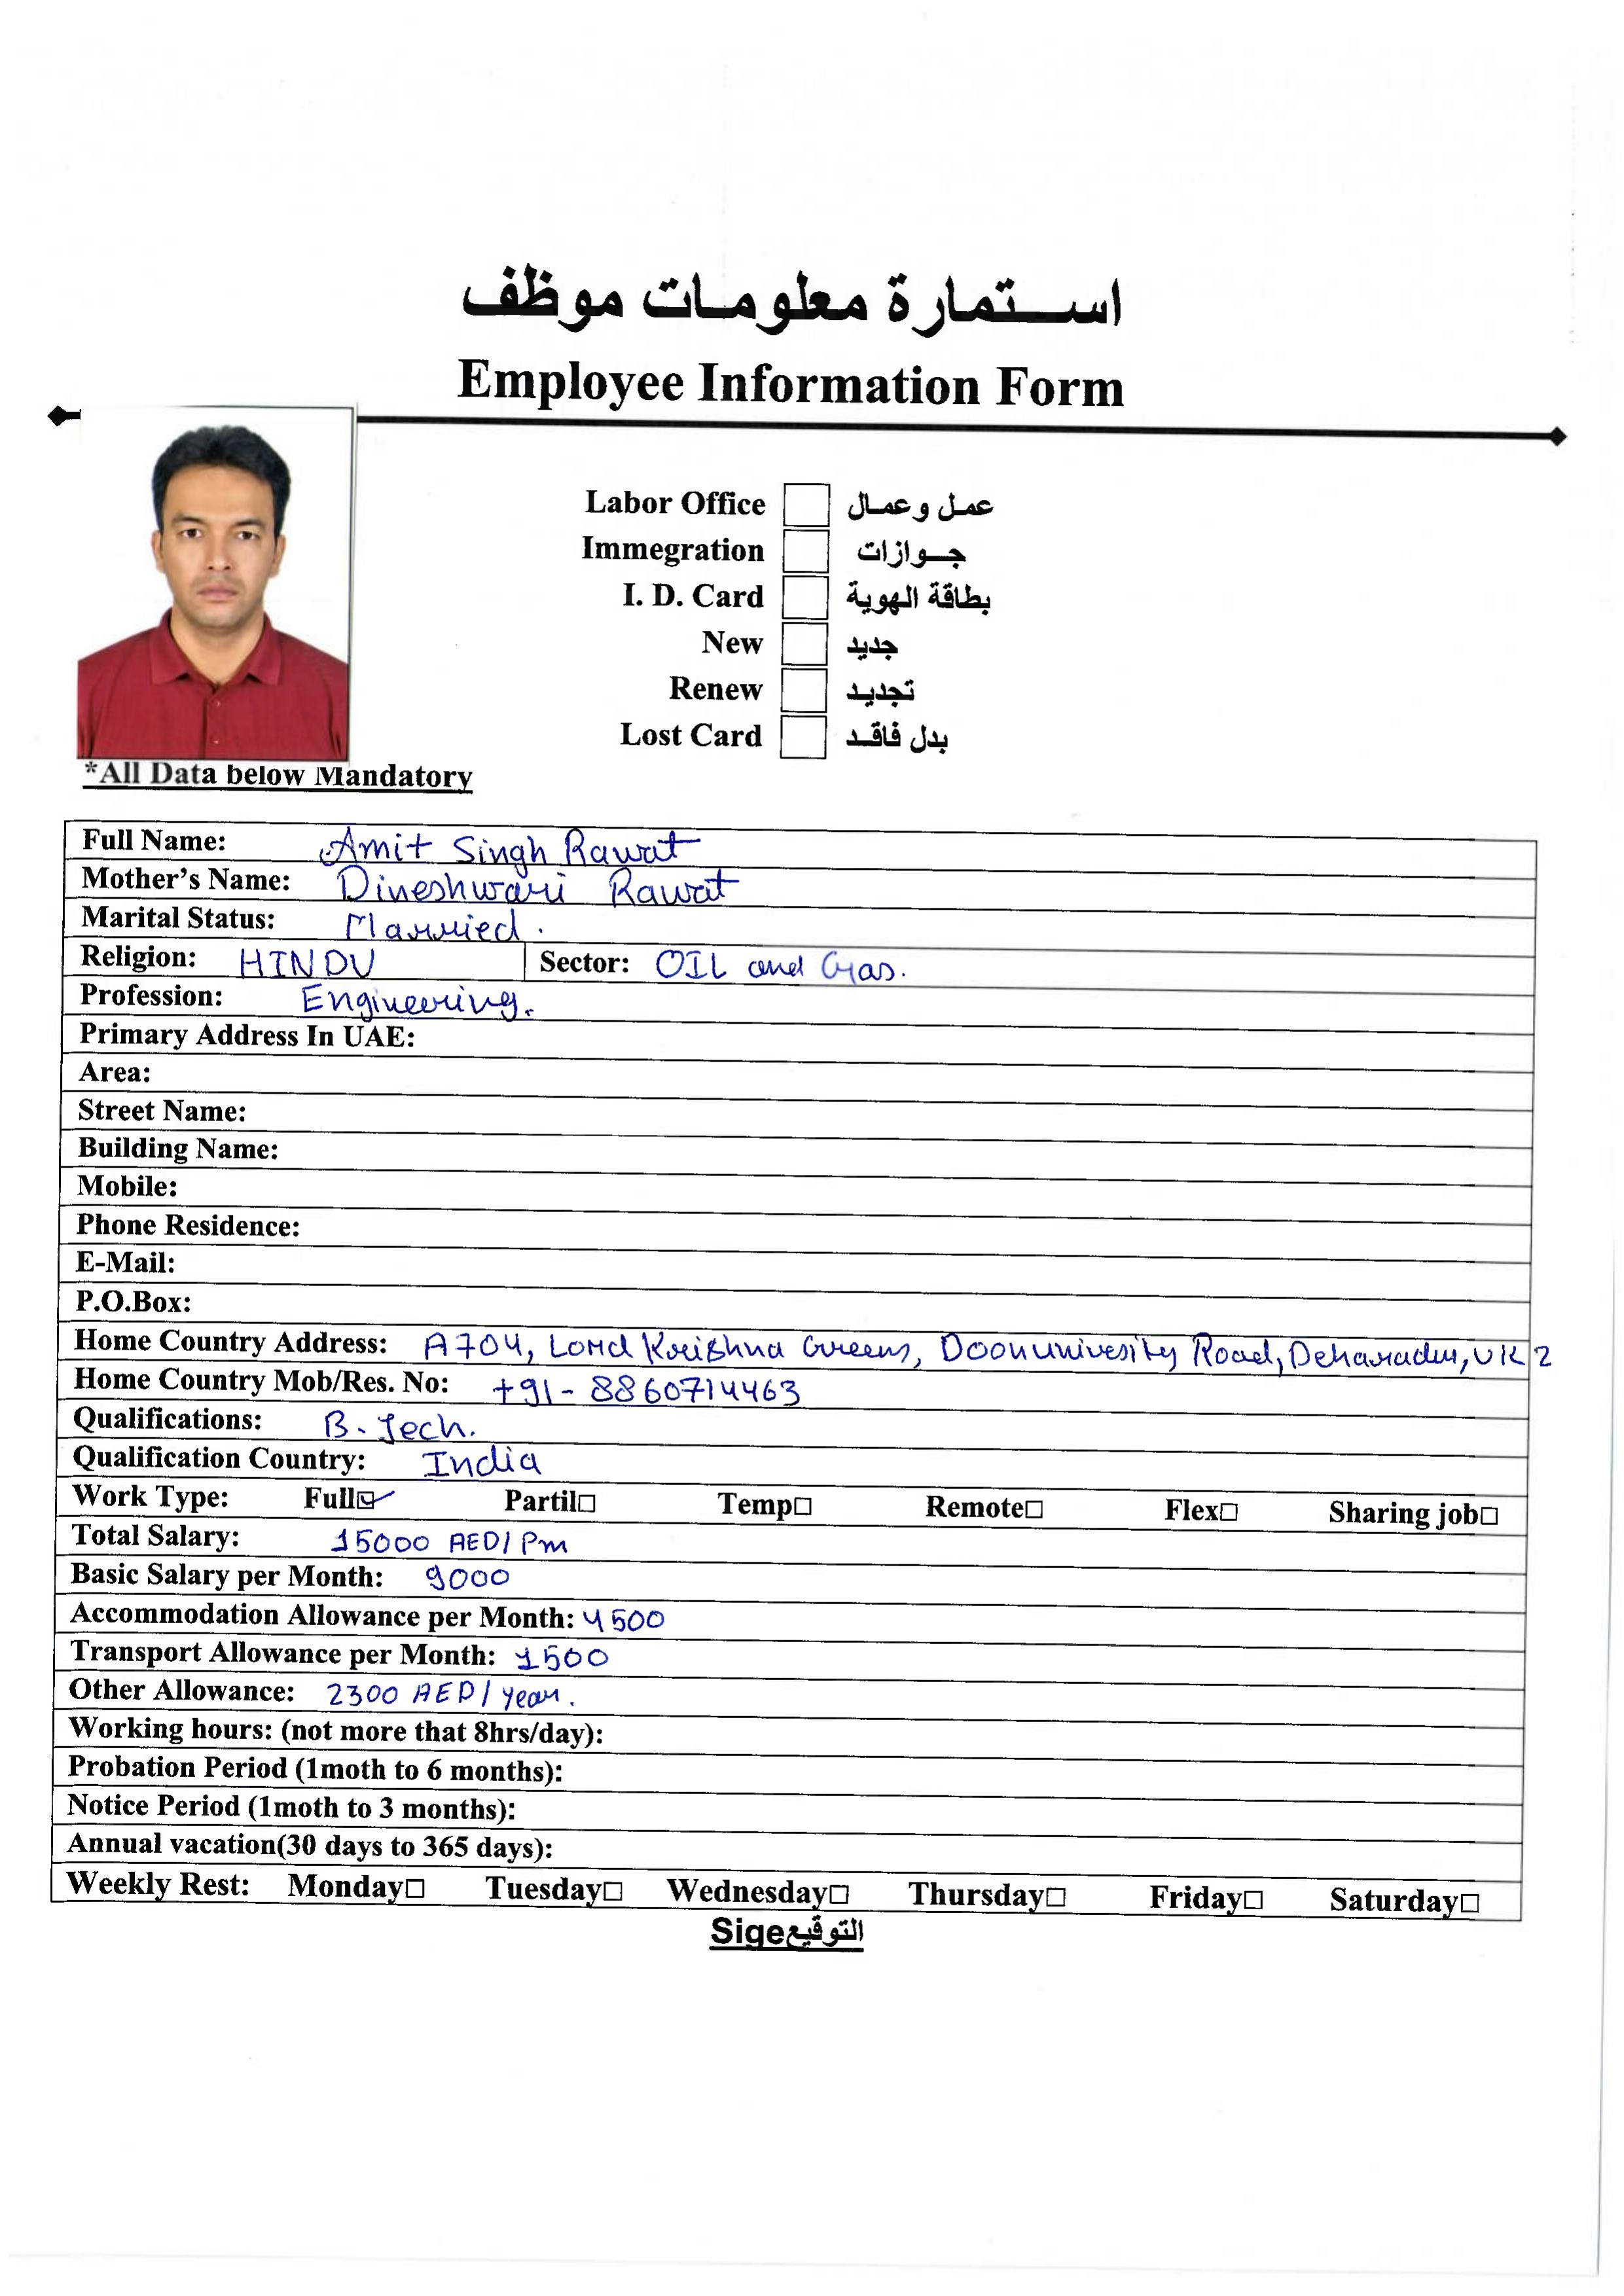 استمارة معلومات موظف
Employee Information Form
Labor Office عمل وعمال
Immegration جوازات
I. D. Card بطاقة الهوية
New جديد
Renew تجديد
Lost Card بدل فاقد
*All Data below Mandatory
Full Name: Amit Singh Rawat
Mother's Name: Dineshwari Rawat
Marital Status: Married.
Religion: HINDU Sector: OIL and Gas.
Profession: Engineering.
Primary Address In UAE:
Area:
Street Name:
Building Name:
Mobile:
Phone Residence:
E-Mail:
P.O.Box:
Home Country Address: A704, Lord Krishna Greens, Doonunivesity Road, Deharadun, UK 2
Home Country Mob/Res. No: +91-8860714463
Qualifications: B.Tech.
Qualification Country: India
Work Type: Full☑ Partil☐ Temp☐ Remote☐ Flex☐ Sharing job☐
Total Salary: 15000 AED/Pm
Basic Salary per Month: 9000
Accommodation Allowance per Month: 4500
Transport Allowance per Month: 1500
Other Allowance: 2300 AED/year.
Working hours: (not more that 8hrs/day):
Probation Period (1moth to 6 months):
Notice Period (1moth to 3 months):
Annual vacation(30 days to 365 days):
Weekly Rest: Monday☐ Tuesday☐ Wednesday☐ Thursday☐ Friday☐ Saturday☐
Sigeالتوقيع